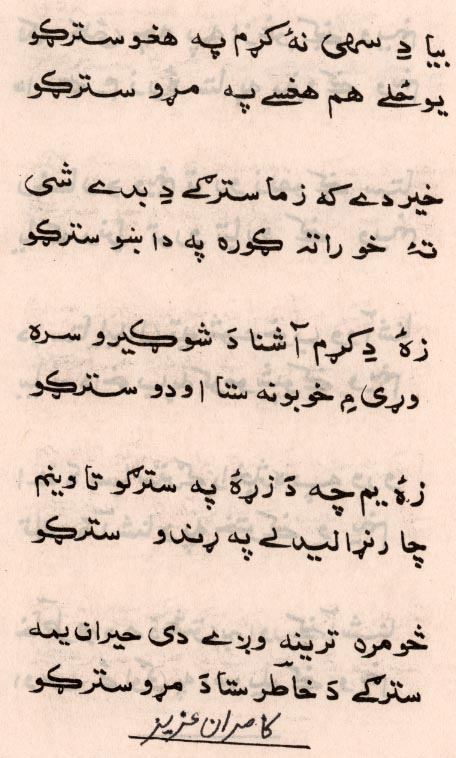 بيا دِ سهی نۀ کړم په هغو سترګو
يو ځلے هم هغسے په مړو سترګو
خير دے که زما سترګے دِ بدے شی
تۀ خو راته ګوره په دا ښو سترګو
زۀ دِ کړم آشنا دَ شوګيرو سره
وړی مِ خوبونه ستا اودو سترګو
زۀ يم چه دَ زړۀ په سترګو تا وينم
چا رنړا ليدلے په ړندو سترګو
څومره ترينه وږے دی حيران يمه
سترګے دَ خاطر ستا دَ مړو سترګو
کامران عزيز